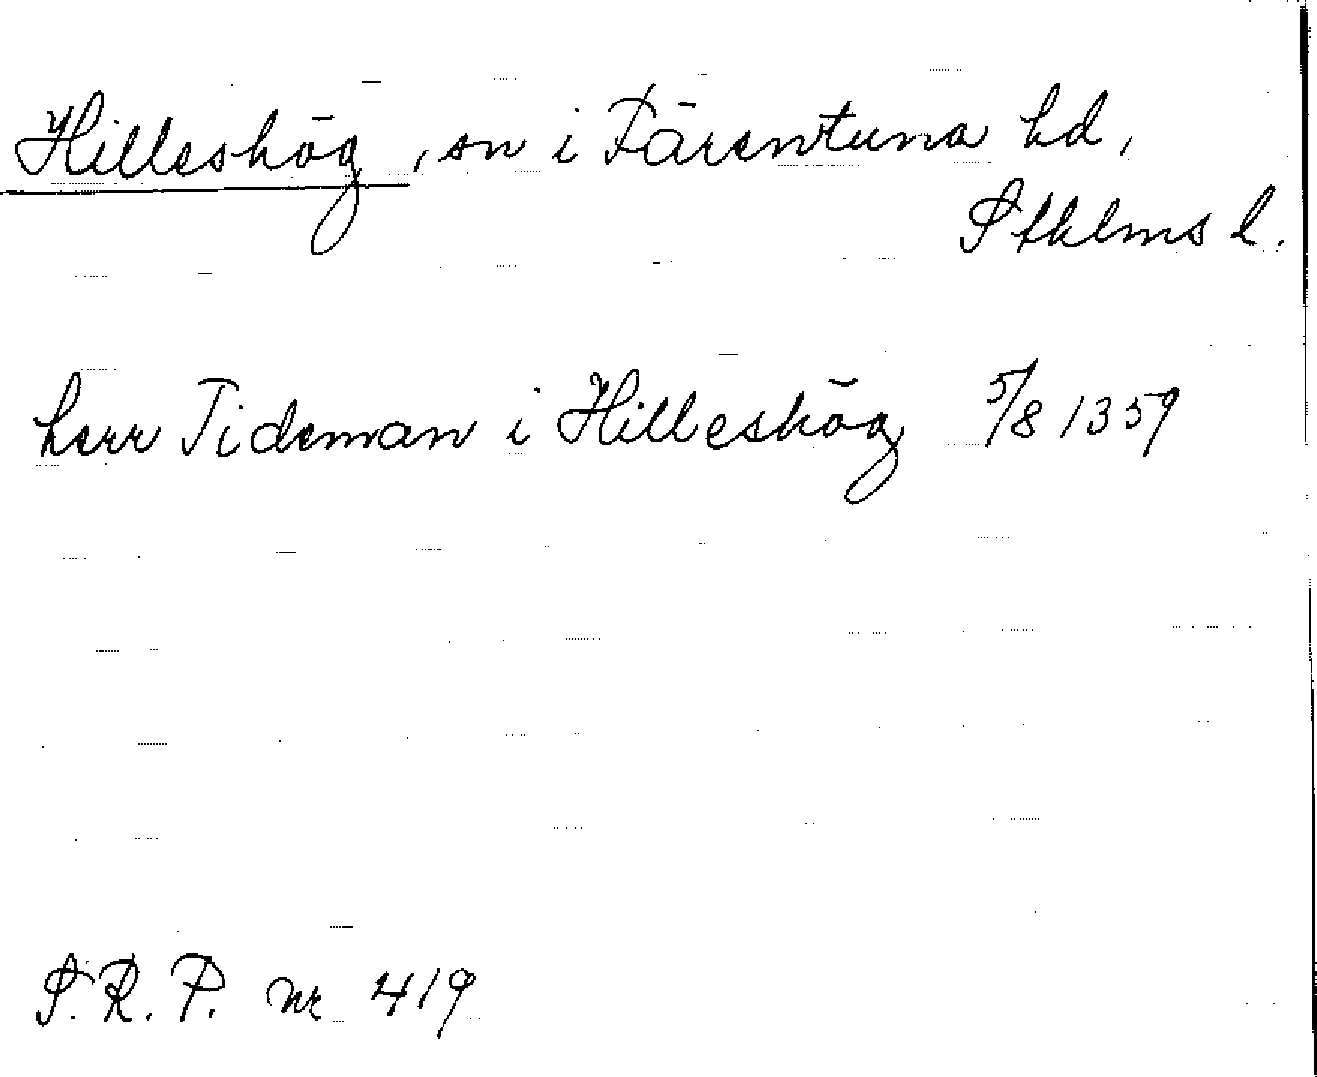 Hilleshög, sn i Färentuna hd,
Sthlms l.
herr Tideman i Hilleshög 5/8 1359
S.R.P. nr 419